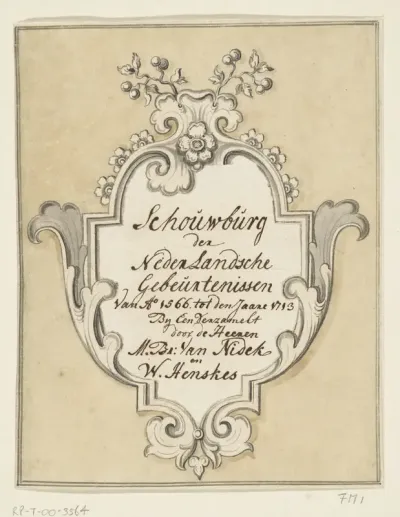 Schouwburg
der
Nederlandsche
Gebeurtenissen
Van Aº 1566. tot den Jaare 1713
By Een Verzamelt
door de Heeren
M. Br: Van Nidek
en
W. Henskes
RP-T-00-3564
FM 1